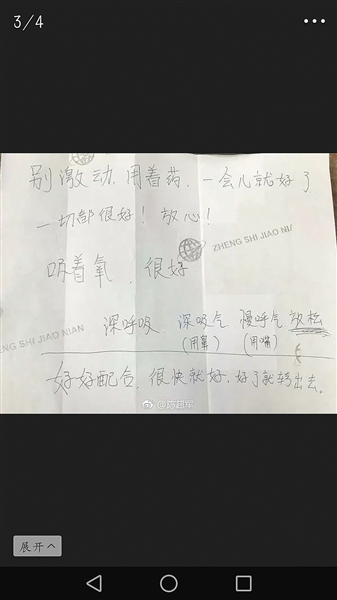 3/4
别激动,用着药,一会儿就好了
一切都很好!放心!
ZHENG SHI JIAO NI
吸着氧,很好
ENG SHI JIAO NIAN
深呼吸 深吸气 慢呼气 放松
(用鼻) (用嘴)
好好配合,很快就好,好了就转出去。
展开